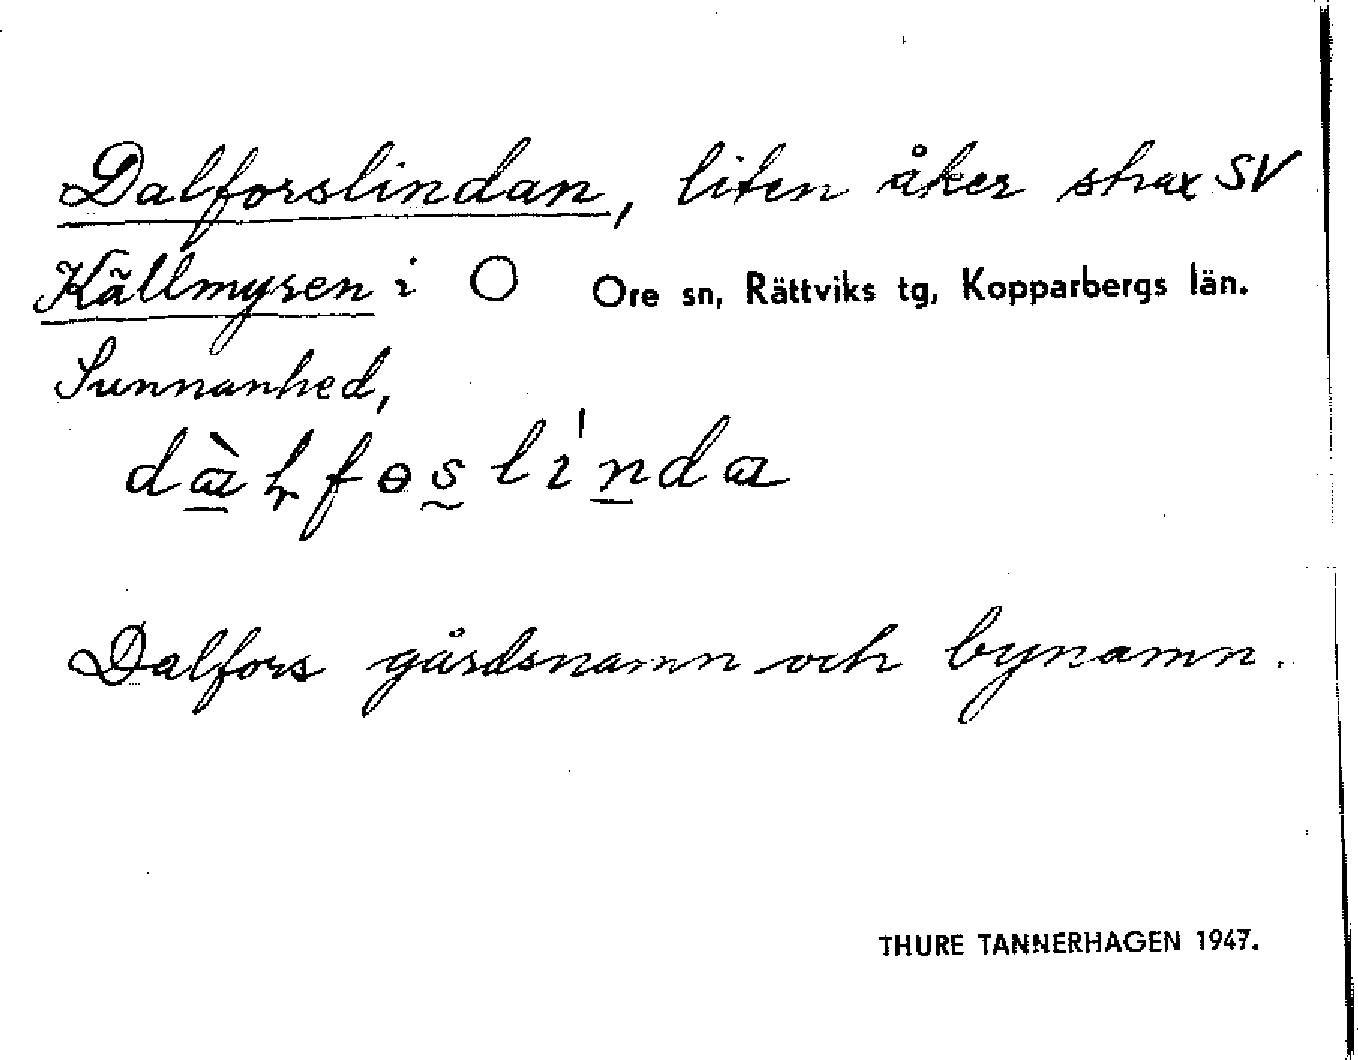 Dalforslindan, liten åker strax SV
Källmyren i O Ore sn, Rättviks tg, Kopparbergs län.
Sunnanhed,
dàɽfɵs̰línda
Dalfors gårdsnamn och bynamn.
THURE TANNERHAGEN 1947.